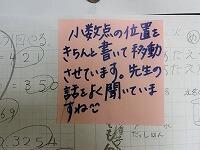 小数点の位置を
きちんと書いて移動
させています。先生の
話をよく聞いていま
すね☺
42
350
0.3254